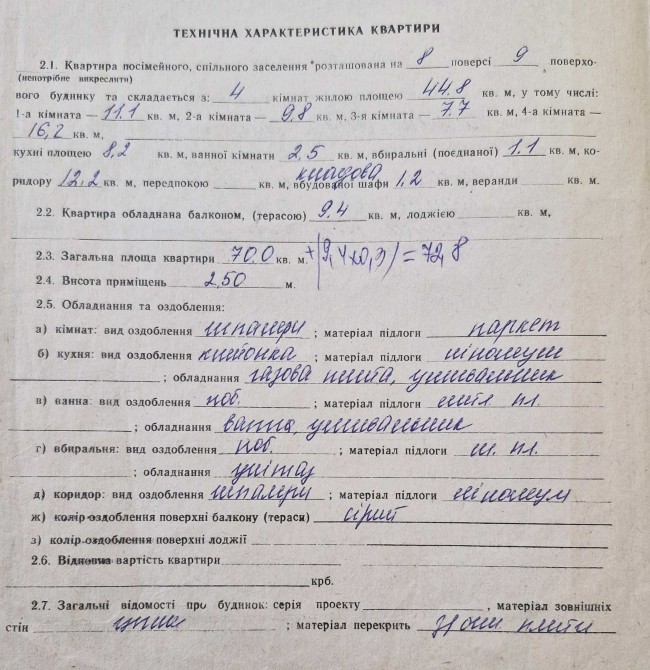 ТЕХНІЧНА ХАРАКТЕРИСТИКА КВАРТИРИ
2.1. Квартира посімейного, спільного заселення *розташована на 8 поверсі 9 поверхо-
(непотрібне викреслити)
вого будинку та складається з: 4 кімнат жилою площею 44.8 кв. м, у тому числі:
1-а кімната — 11.1 кв. м, 2-а кімната — 9.8 кв. м, 3-я кімната — 7.7 кв. м, 4-а кімната —
16,2 кв. м,
кухні площею 8,2 кв. м, ванної кімнати 2,5 кв. м, вбиральні (поєднаної) 1.1 кв. м, ко-
кладова
ридору 12,2 кв. м, передпокою кв. м, вбудованої шафи 1,2 кв. м, веранди кв. м.
2.2. Квартира обладнана балконом, (терасою) 9.4 кв. м, лоджією кв. м,
2.3. Загальна площа квартири 70,0 кв. м. +(9,4х0,3)=72,8
2.4. Висота приміщень 2,50 м.
2.5. Обладнання та оздоблення:
а) кімнат: вид оздоблення шпалери ; матеріал підлоги паркет
б) кухня: вид оздоблення клейонка ; матеріал підлоги лінолеум
; обладнання газова плита, умивальник
в) ванна: вид оздоблення поб. ; матеріал підлоги пл.
; обладнання ванна, умивальник
г) вбиральня: вид оздоблення поб. ; матеріал підлоги пл.
; обладнання унітаз
д) коридор: вид оздоблення шпалери ; матеріал підлоги лінолеум
ж) колір оздоблення поверхні балкону (тераси) сірий
з) колір оздоблення поверхні лоджії
2.6. Відновна вартість квартири
крб.
2.7. Загальні відомості про будинок: серія проекту , матеріал зовнішніх
стін цегла ; матеріал перекрить плити